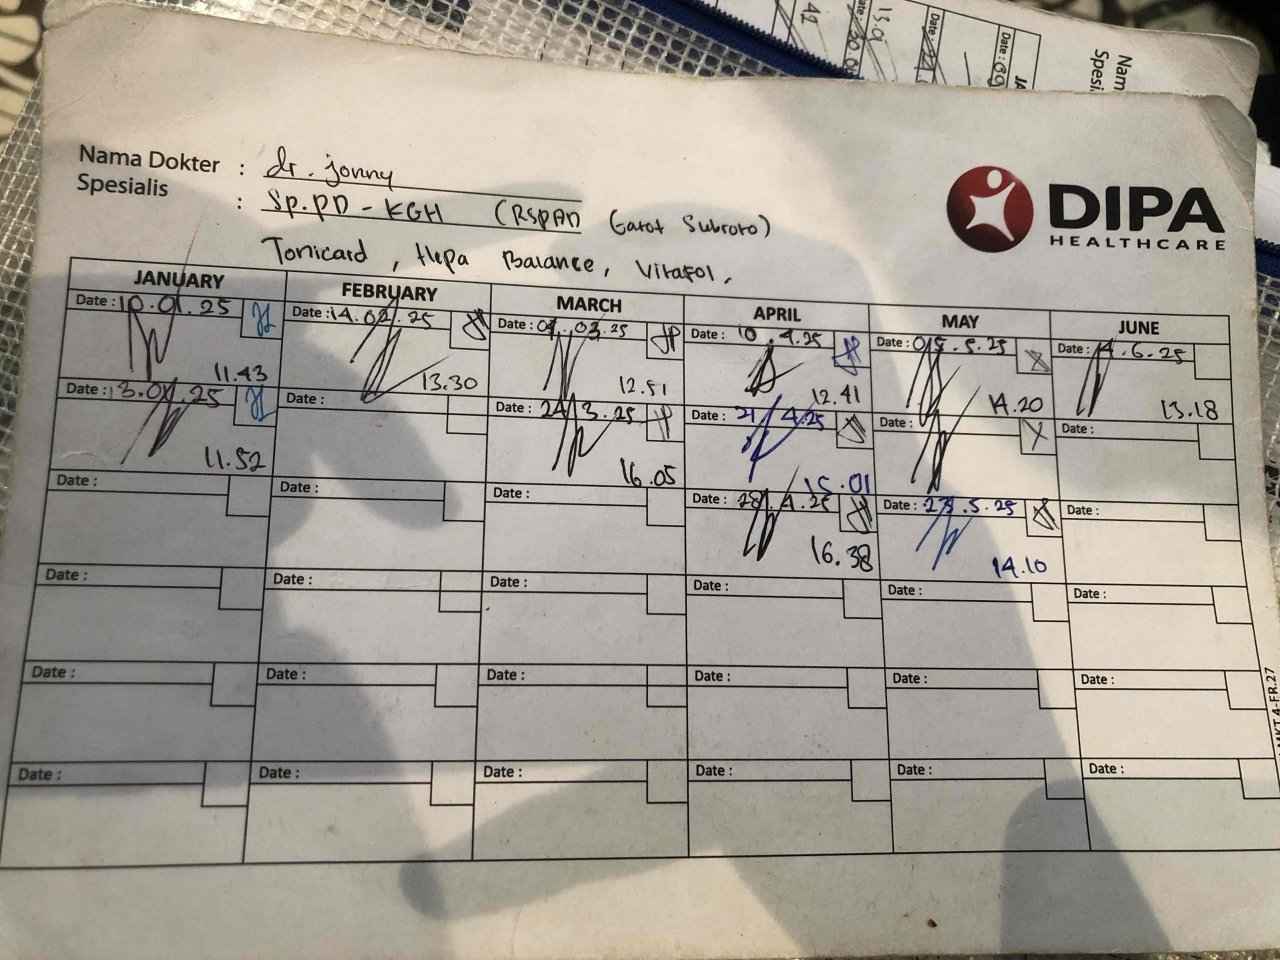 Nama Dokter : dr. jonny
Spesialis : Sp.PD - KGH (RSPAD Gatot Subroto)
Tonicard, Hepa Balance, Vitafol,
DIPA
HEALTHCARE
JANUARY FEBRUARY MARCH APRIL MAY JUNE
Date : 10.01.25 Date : 14.02.25 Date : 07.03.25 Date : 10.4.25 Date : 05.5.25 Date : 14.6.25
11.43 13.30 12.51 12.41 14.20 13.18
Date : 13.01.25 Date : Date : 24.3.25 Date : 21.4.25 Date : Date :
11.52 16.05 15.01
Date : Date : Date : Date : 28.4.25 Date : 23.5.25 Date :
16.38 14.10
Date : Date : Date : Date : Date : Date :
Date : Date : Date : Date : Date : Date :
Date : Date : Date : Date : Date : Date :
MKT.4-FR.27
Nam
Spesi
Date :
Date :